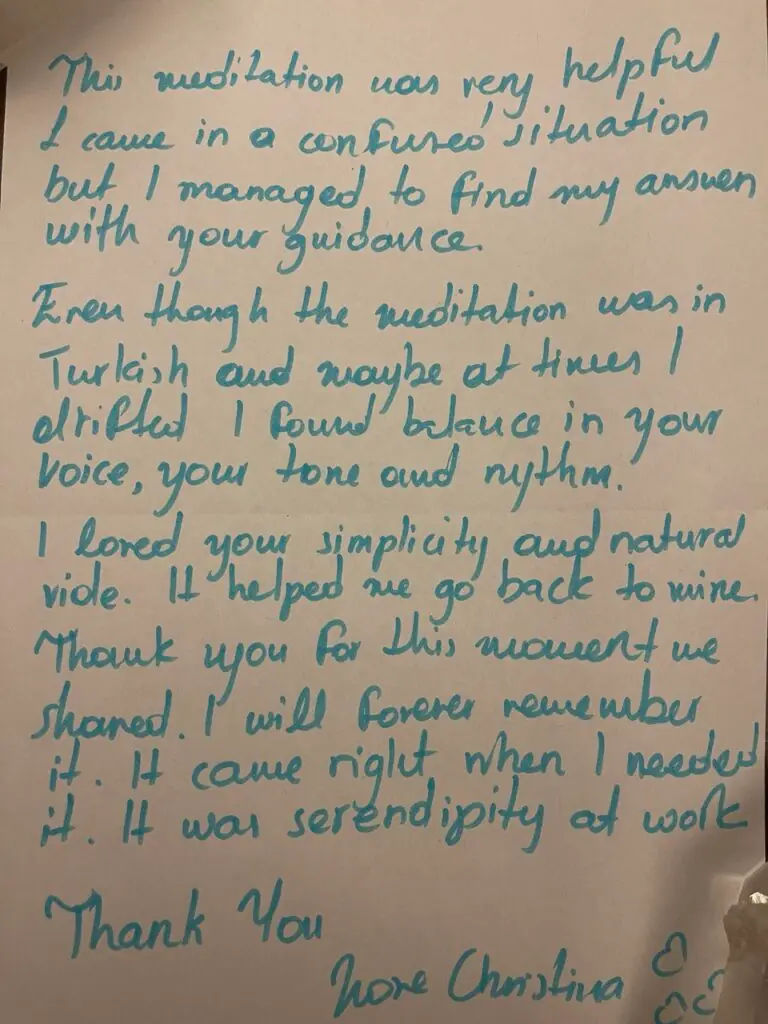 This meditation was very helpful
I came in a confused situation
but I managed to find my answer
with your guidance.
Even though the meditation was in
Turkish and maybe at times I
drifted I found balance in your
voice, your tone and rythm.
I loved your simplicity and natural
vide. It helped me go back to mine.
Thank you for this moment we
shared. I will forever remember
it. It came right when I needed
it. It was serendipity at work
Thank You
Love Christina